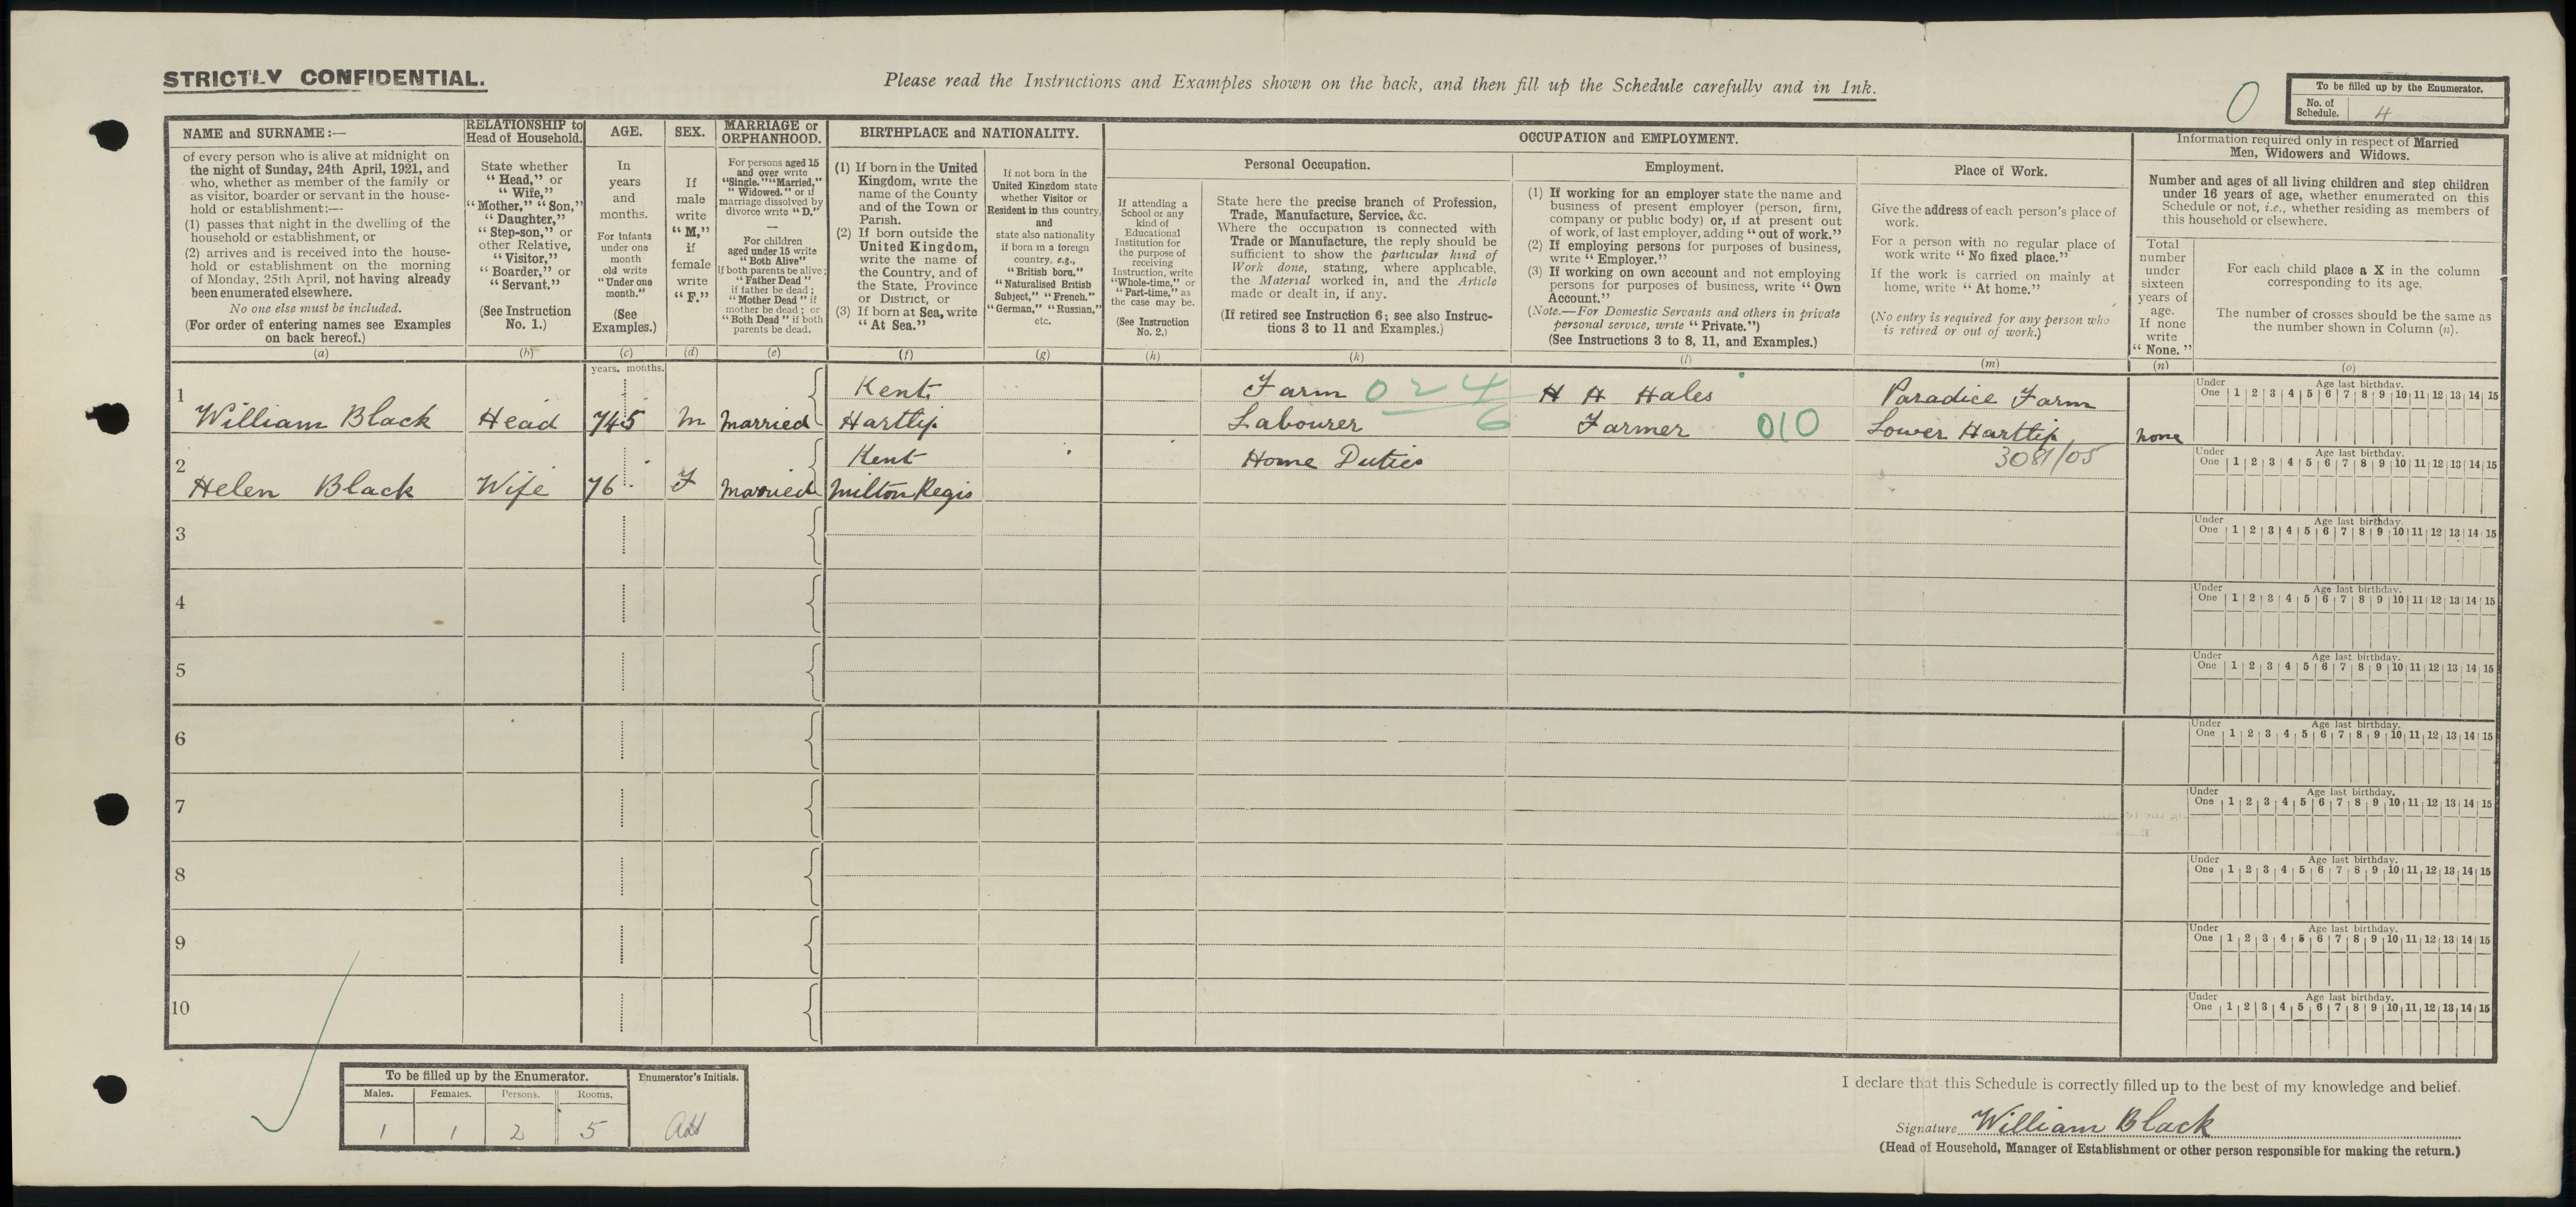 STRICTLY CONFIDENTIAL.
Please read the Instructions and Examples shown on the back, and then fill up the Schedule carefully and in Ink.
0
To be filled up by the Enumerator.
No. of Schedule. 4
NAME and SURNAME :—
of every person who is alive at midnight on
the night of Sunday, 24th April, 1921, and
who, whether as member of the family or
as visitor, boarder or servant in the house-
hold or establishment:—
(1) passes that night in the dwelling of the
household or establishment, or
(2) arrives and is received into the house-
hold or establishment on the morning
of Monday, 25th April, not having already
been enumerated elsewhere.
No one else must be included.
(For order of entering names see Examples
on back hereof.)
(a)
RELATIONSHIP to
Head of Household.
State whether
"Head," or
"Wife,"
"Mother," "Son,"
"Daughter,"
"Step-son," or
other Relative,
"Visitor,"
"Boarder," or
"Servant."
(See Instruction
No. 1.)
(b)
AGE.
In
years
and
months.
For infants
under one
month
old write
"Under one
month."
(See
Examples.)
(c)
SEX.
If
male
write
"M,"
if
female
write
"F."
(d)
MARRIAGE or
ORPHANHOOD.
For persons aged 15
and over write
"Single," "Married,"
"Widowed," or if
marriage dissolved by
divorce write "D."
—
For children
aged under 15 write
"Both Alive"
if both parents be alive;
"Father Dead"
if father be dead;
"Mother Dead" if
mother be dead; or
"Both Dead" if both
parents be dead.
(e)
BIRTHPLACE and NATIONALITY.
(1) If born in the United
Kingdom, write the
name of the County
and of the Town or
Parish.
(2) If born outside the
United Kingdom,
write the name of
the Country, and of
the State, Province
or District, or
(3) If born at Sea, write
"At Sea."
(f)
If not born in the
United Kingdom state
whether Visitor or
Resident in this country,
and
state also nationality
if born in a foreign
country, e.g.,
"British born,"
"Naturalised British
Subject," "French,"
"German," "Russian,"
etc.
(g)
OCCUPATION and EMPLOYMENT.
If attending a
School or any
kind of
Educational
Institution for
the purpose of
receiving
Instruction, write
"Whole-time," or
"Part-time," as
the case may be.
(See Instruction
No. 2.)
(h)
Personal Occupation.
State here the precise branch of Profession,
Trade, Manufacture, Service, &c.
Where the occupation is connected with
Trade or Manufacture, the reply should be
sufficient to show the particular kind of
Work done, stating, where applicable,
the Material worked in, and the Article
made or dealt in, if any.
(If retired see Instruction 6; see also Instruc-
tions 3 to 11 and Examples.)
(k)
Employment.
(1) If working for an employer state the name and
business of present employer (person, firm,
company or public body) or, if at present out
of work, of last employer, adding "out of work."
(2) If employing persons for purposes of business,
write "Employer."
(3) If working on own account and not employing
persons for purposes of business, write "Own
Account."
(Note.—For Domestic Servants and others in private
personal service, write "Private.")
(See Instructions 3 to 8, 11, and Examples.)
(l)
Place of Work.
Give the address of each person's place of
work.
For a person with no regular place of
work write "No fixed place."
If the work is carried on mainly at
home, write "At home."
(No entry is required for any person who
is retired or out of work.)
(m)
Information required only in respect of Married
Men, Widowers and Widows.
Number and ages of all living children and step children
under 16 years of age, whether enumerated on this
Schedule or not, i.e., whether residing as members of
this household or elsewhere.
Total
number
under
sixteen
years of
age.
If none
write
"None."
(n)
For each child place a X in the column
corresponding to its age.
The number of crosses should be the same as
the number shown in Column (n).
(o)
years. months.
1
William Black Head 74 5 M Married Kent Hartlip Farm Labourer 024 6 H H Hales Farmer 010 Paradice Farm Lower Hartlip none
Under One Age last birthday. 1 2 3 4 5 6 7 8 9 10 11 12 13 14 15
2
Helen Black Wife 76 F Married Kent Milton Regis Home Duties 3081/05
Under One Age last birthday. 1 2 3 4 5 6 7 8 9 10 11 12 13 14 15
3
Under One Age last birthday. 1 2 3 4 5 6 7 8 9 10 11 12 13 14 15
4
Under One Age last birthday. 1 2 3 4 5 6 7 8 9 10 11 12 13 14 15
5
Under One Age last birthday. 1 2 3 4 5 6 7 8 9 10 11 12 13 14 15
6
Under One Age last birthday. 1 2 3 4 5 6 7 8 9 10 11 12 13 14 15
7
Under One Age last birthday. 1 2 3 4 5 6 7 8 9 10 11 12 13 14 15
8
Under One Age last birthday. 1 2 3 4 5 6 7 8 9 10 11 12 13 14 15
9
Under One Age last birthday. 1 2 3 4 5 6 7 8 9 10 11 12 13 14 15
10
Under One Age last birthday. 1 2 3 4 5 6 7 8 9 10 11 12 13 14 15
To be filled up by the Enumerator.
Enumerator's Initials.
Males. Females. Persons. Rooms.
1 1 2 5
I declare that this Schedule is correctly filled up to the best of my knowledge and belief.
Signature William Black
(Head of Household, Manager of Establishment or other person responsible for making the return.)